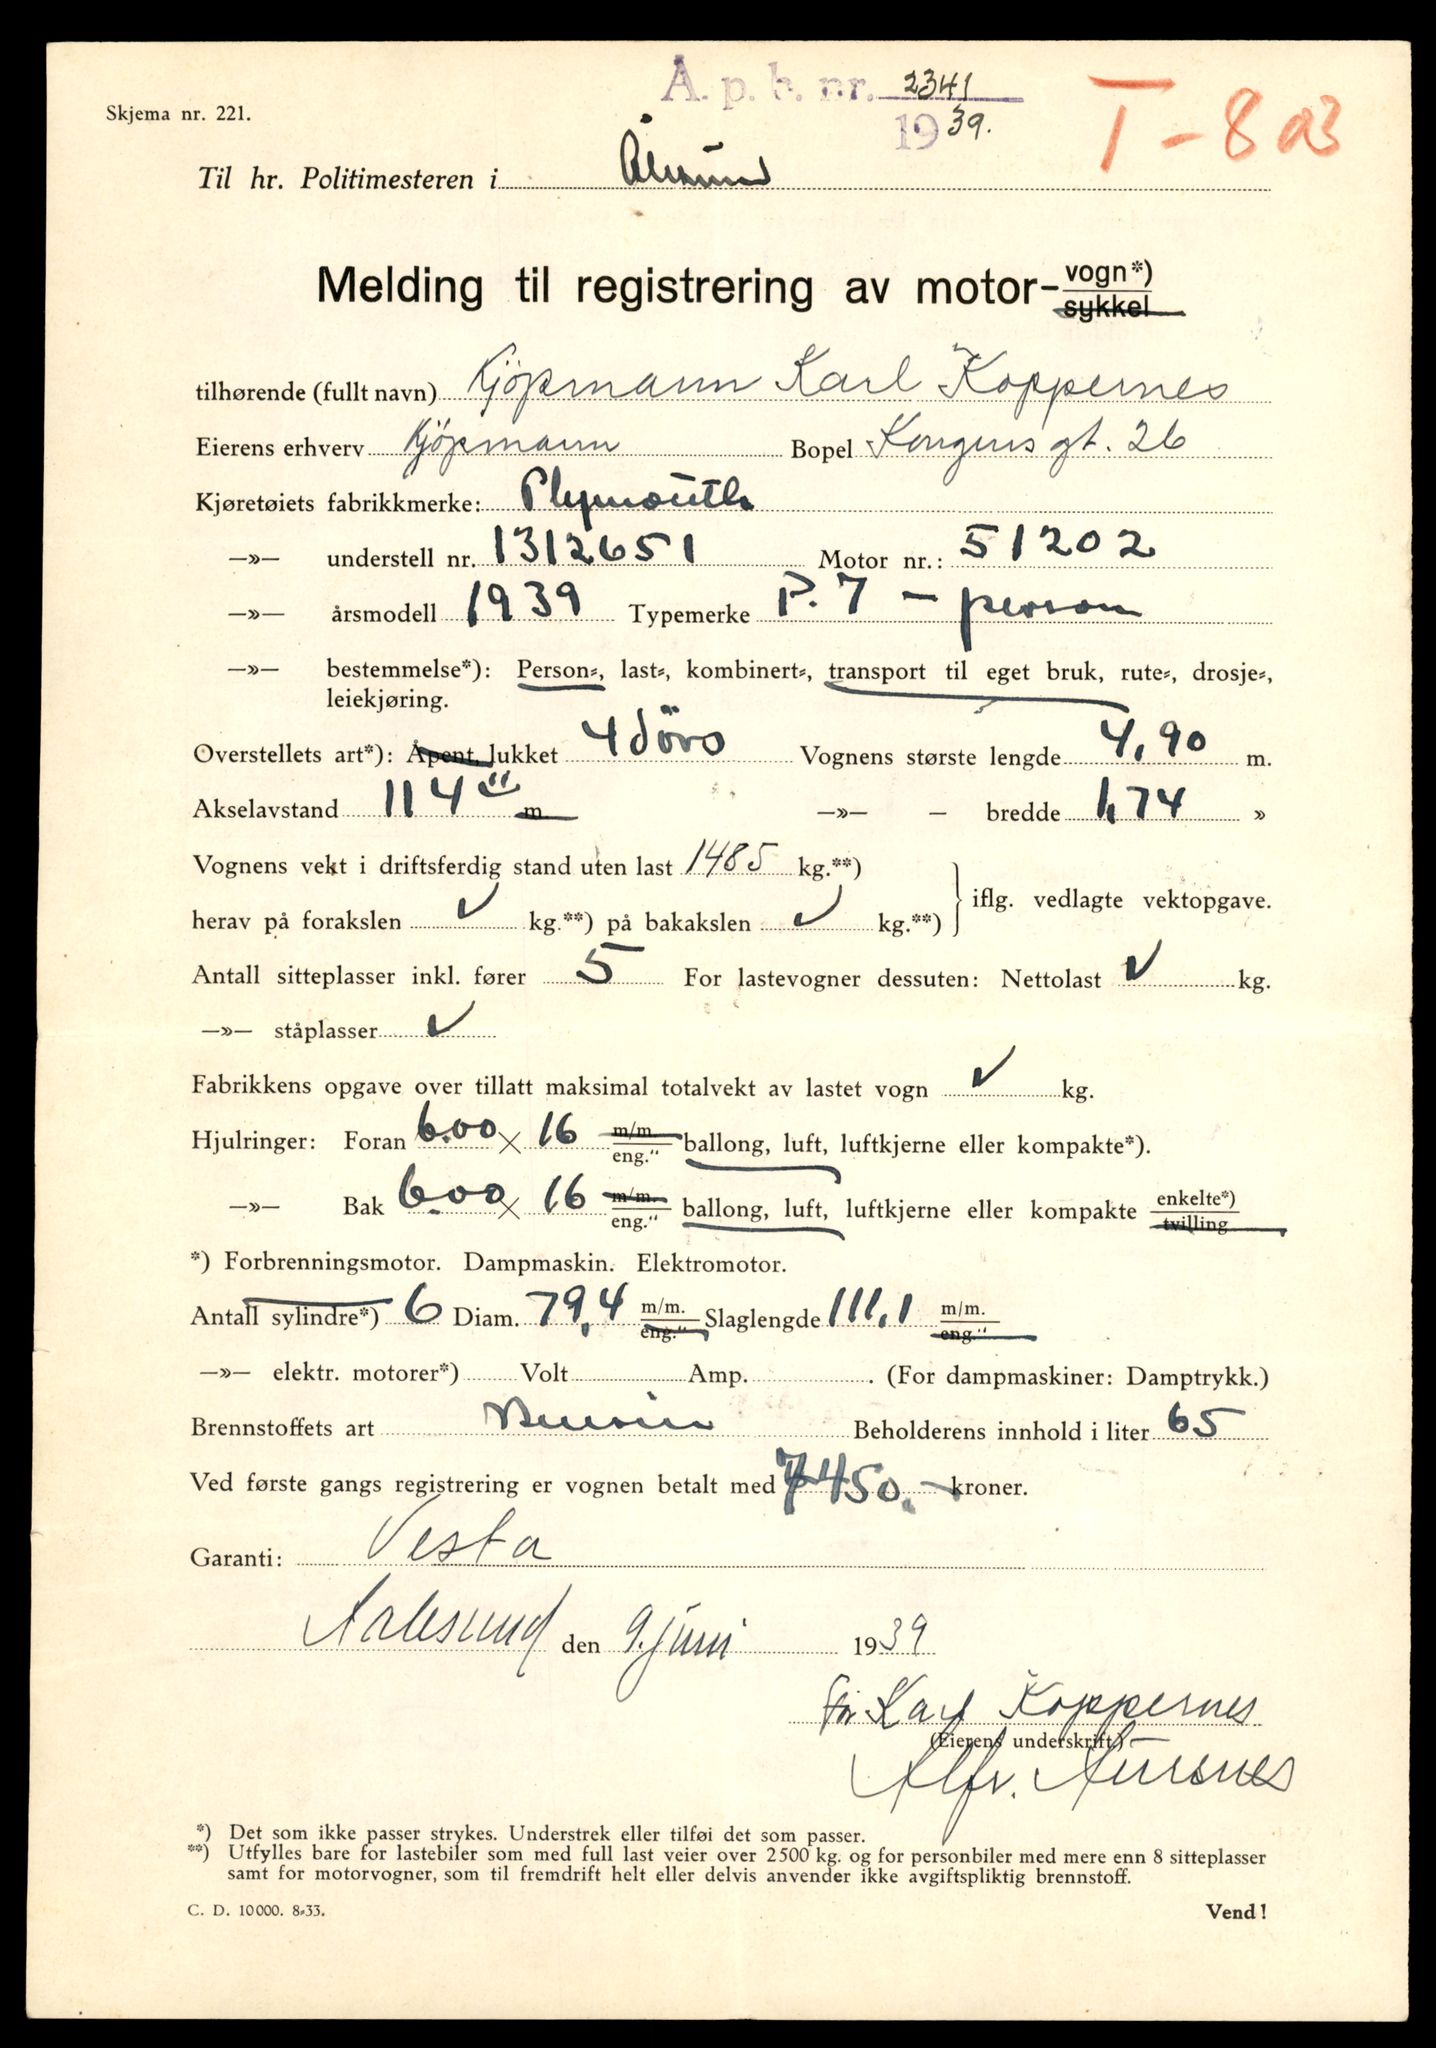 Å. p. b. nr. 2341
1939.
T-803
Skjema nr. 221.
Til hr. Politimesteren i Ålesund
Melding til registrering av motor- vogn*) sykkel
tilhørende (fullt navn) Kjöpmann Karl Koppernes
Eierens erhverv Kjöpmann Bopel Kongens gt. 26
Kjøretøiets fabrikkmerke: Plymouth
—»— understell nr. 1312651 Motor nr.: 51202
—»— årsmodell 1939 Typemerke P. 7 – person
—»— bestemmelse*): Person-, last-, kombinert-, transport til eget bruk, rute-, drosje-,
leiekjøring.
Overstellets art*): Åpent, lukket 4 dörs Vognens største lengde 4,90 m.
Akselavstand 114" m —»— – bredde 1,74 »
Vognens vekt i driftsferdig stand uten last 1485 kg.**)
herav på forakslen ✓ kg.**) på bakakslen ✓ kg.**) iflg. vedlagte vektopgave.
Antall sitteplasser inkl. fører 5 For lastevogner dessuten: Nettolast ✓ kg.
—»— ståplasser ✓
Fabrikkens opgave over tillatt maksimal totalvekt av lastet vogn ✓ kg.
Hjulringer: Foran 6.00 × 16 m/m. eng." ballong, luft, luftkjerne eller kompakte*).
—»— Bak 6.00 × 16 m/m. eng." ballong, luft, luftkjerne eller kompakte enkelte*) tvilling
*) Forbrenningsmotor. Dampmaskin. Elektromotor.
Antall sylindre*) 6 Diam. 79,4 m/m. eng." Slaglengde 111,1 m/m. eng."
—»— elektr. motorer*) Volt Amp. . (For dampmaskiner: Damptrykk.)
Brennstoffets art Bensin Beholderens innhold i liter 65
Ved første gangs registrering er vognen betalt med 7450.- kroner.
Garanti: Vesta
Aalesund den 9. juni 1939
for Karl Koppernes
(Eierens underskrift)
Alfr. Aursnes
*) Det som ikke passer strykes. Understrek eller tilføi det som passer.
**) Utfylles bare for lastebiler som med full last veier over 2500 kg. og for personbiler med mere enn 8 sitteplasser
samt for motorvogner, som til fremdrift helt eller delvis anvender ikke avgiftspliktig brennstoff.
C. D. 10000. 8-33.
Vend!